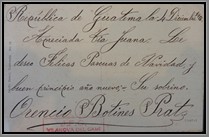 República de Guatemala 4 Diciembre
Apreciada Tía Juana. Les
deseo Felices Pascuas de Navidad, y
buen principio año nuevo. Su sobrino.
Orencio Botines Prats